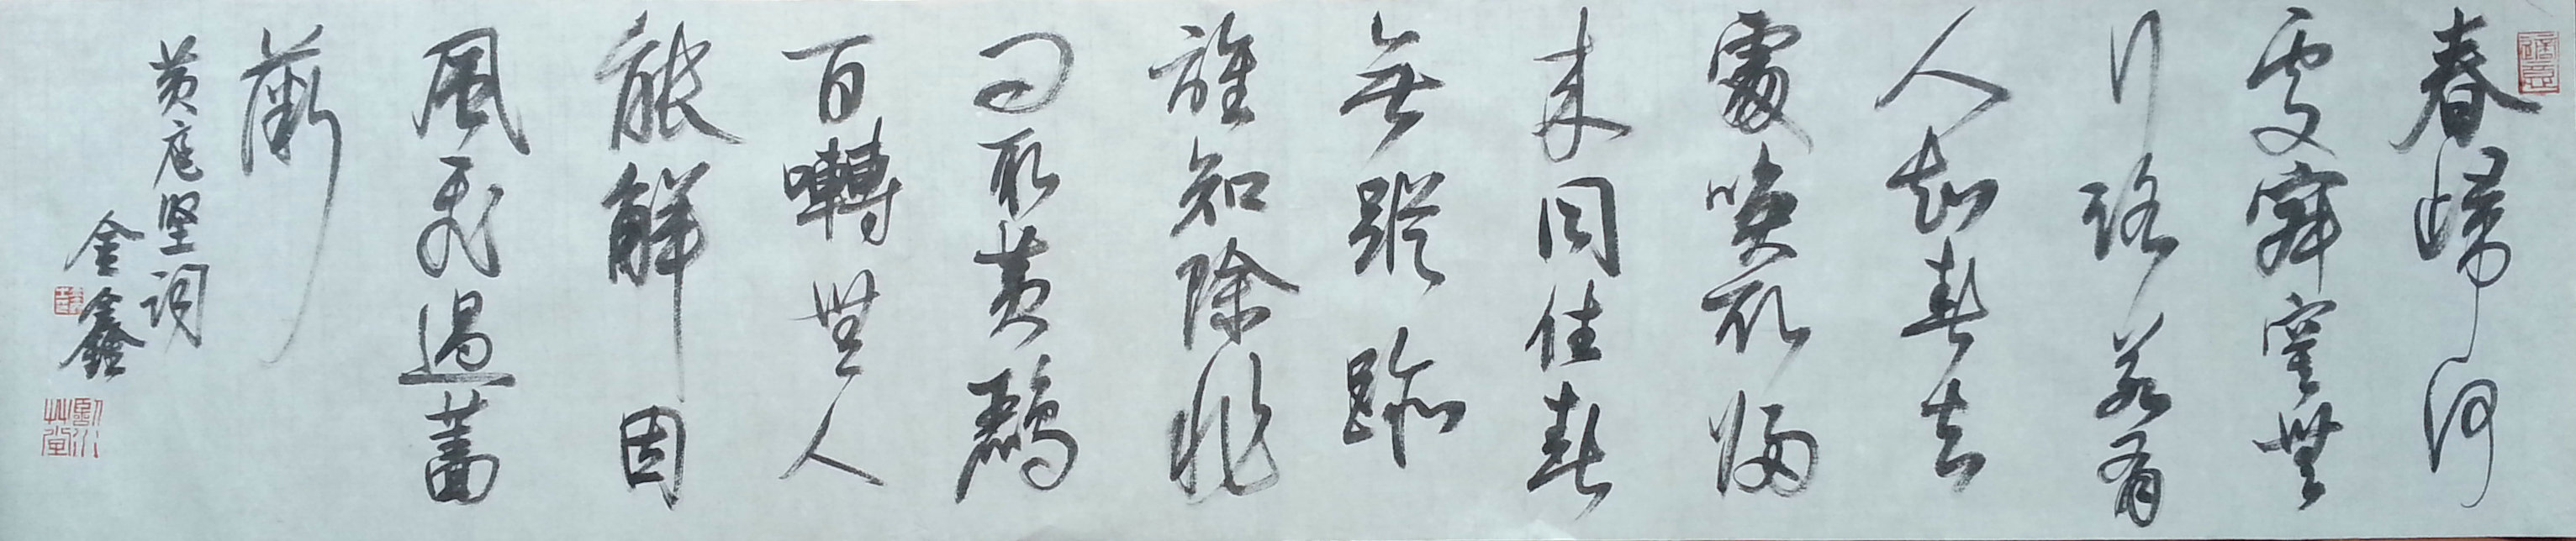 春歸何
處寂寞無
行路若有
人知春去
處喚取歸
來同住春
無蹤跡
誰知除非
問取黃鸝
百囀無人
能解因
風飛過薔
薇
黄庭坚词
金鑫